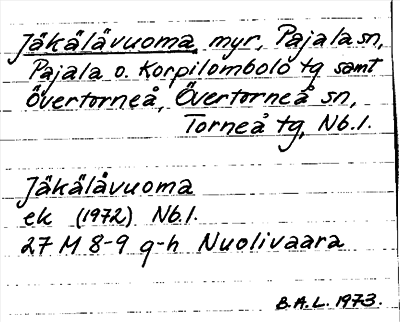 Jäkälävuoma, myr, Pajala sn,
Pajala o. Korpilombolo tg samt
Övertorneå, Övertorneå sn,
Torneå tg, Nb.l.
Jäkälävuoma
ek (1972) Nb.l.
27 M 8-9 g-h Nuolivaara
B.A.L. 1973.